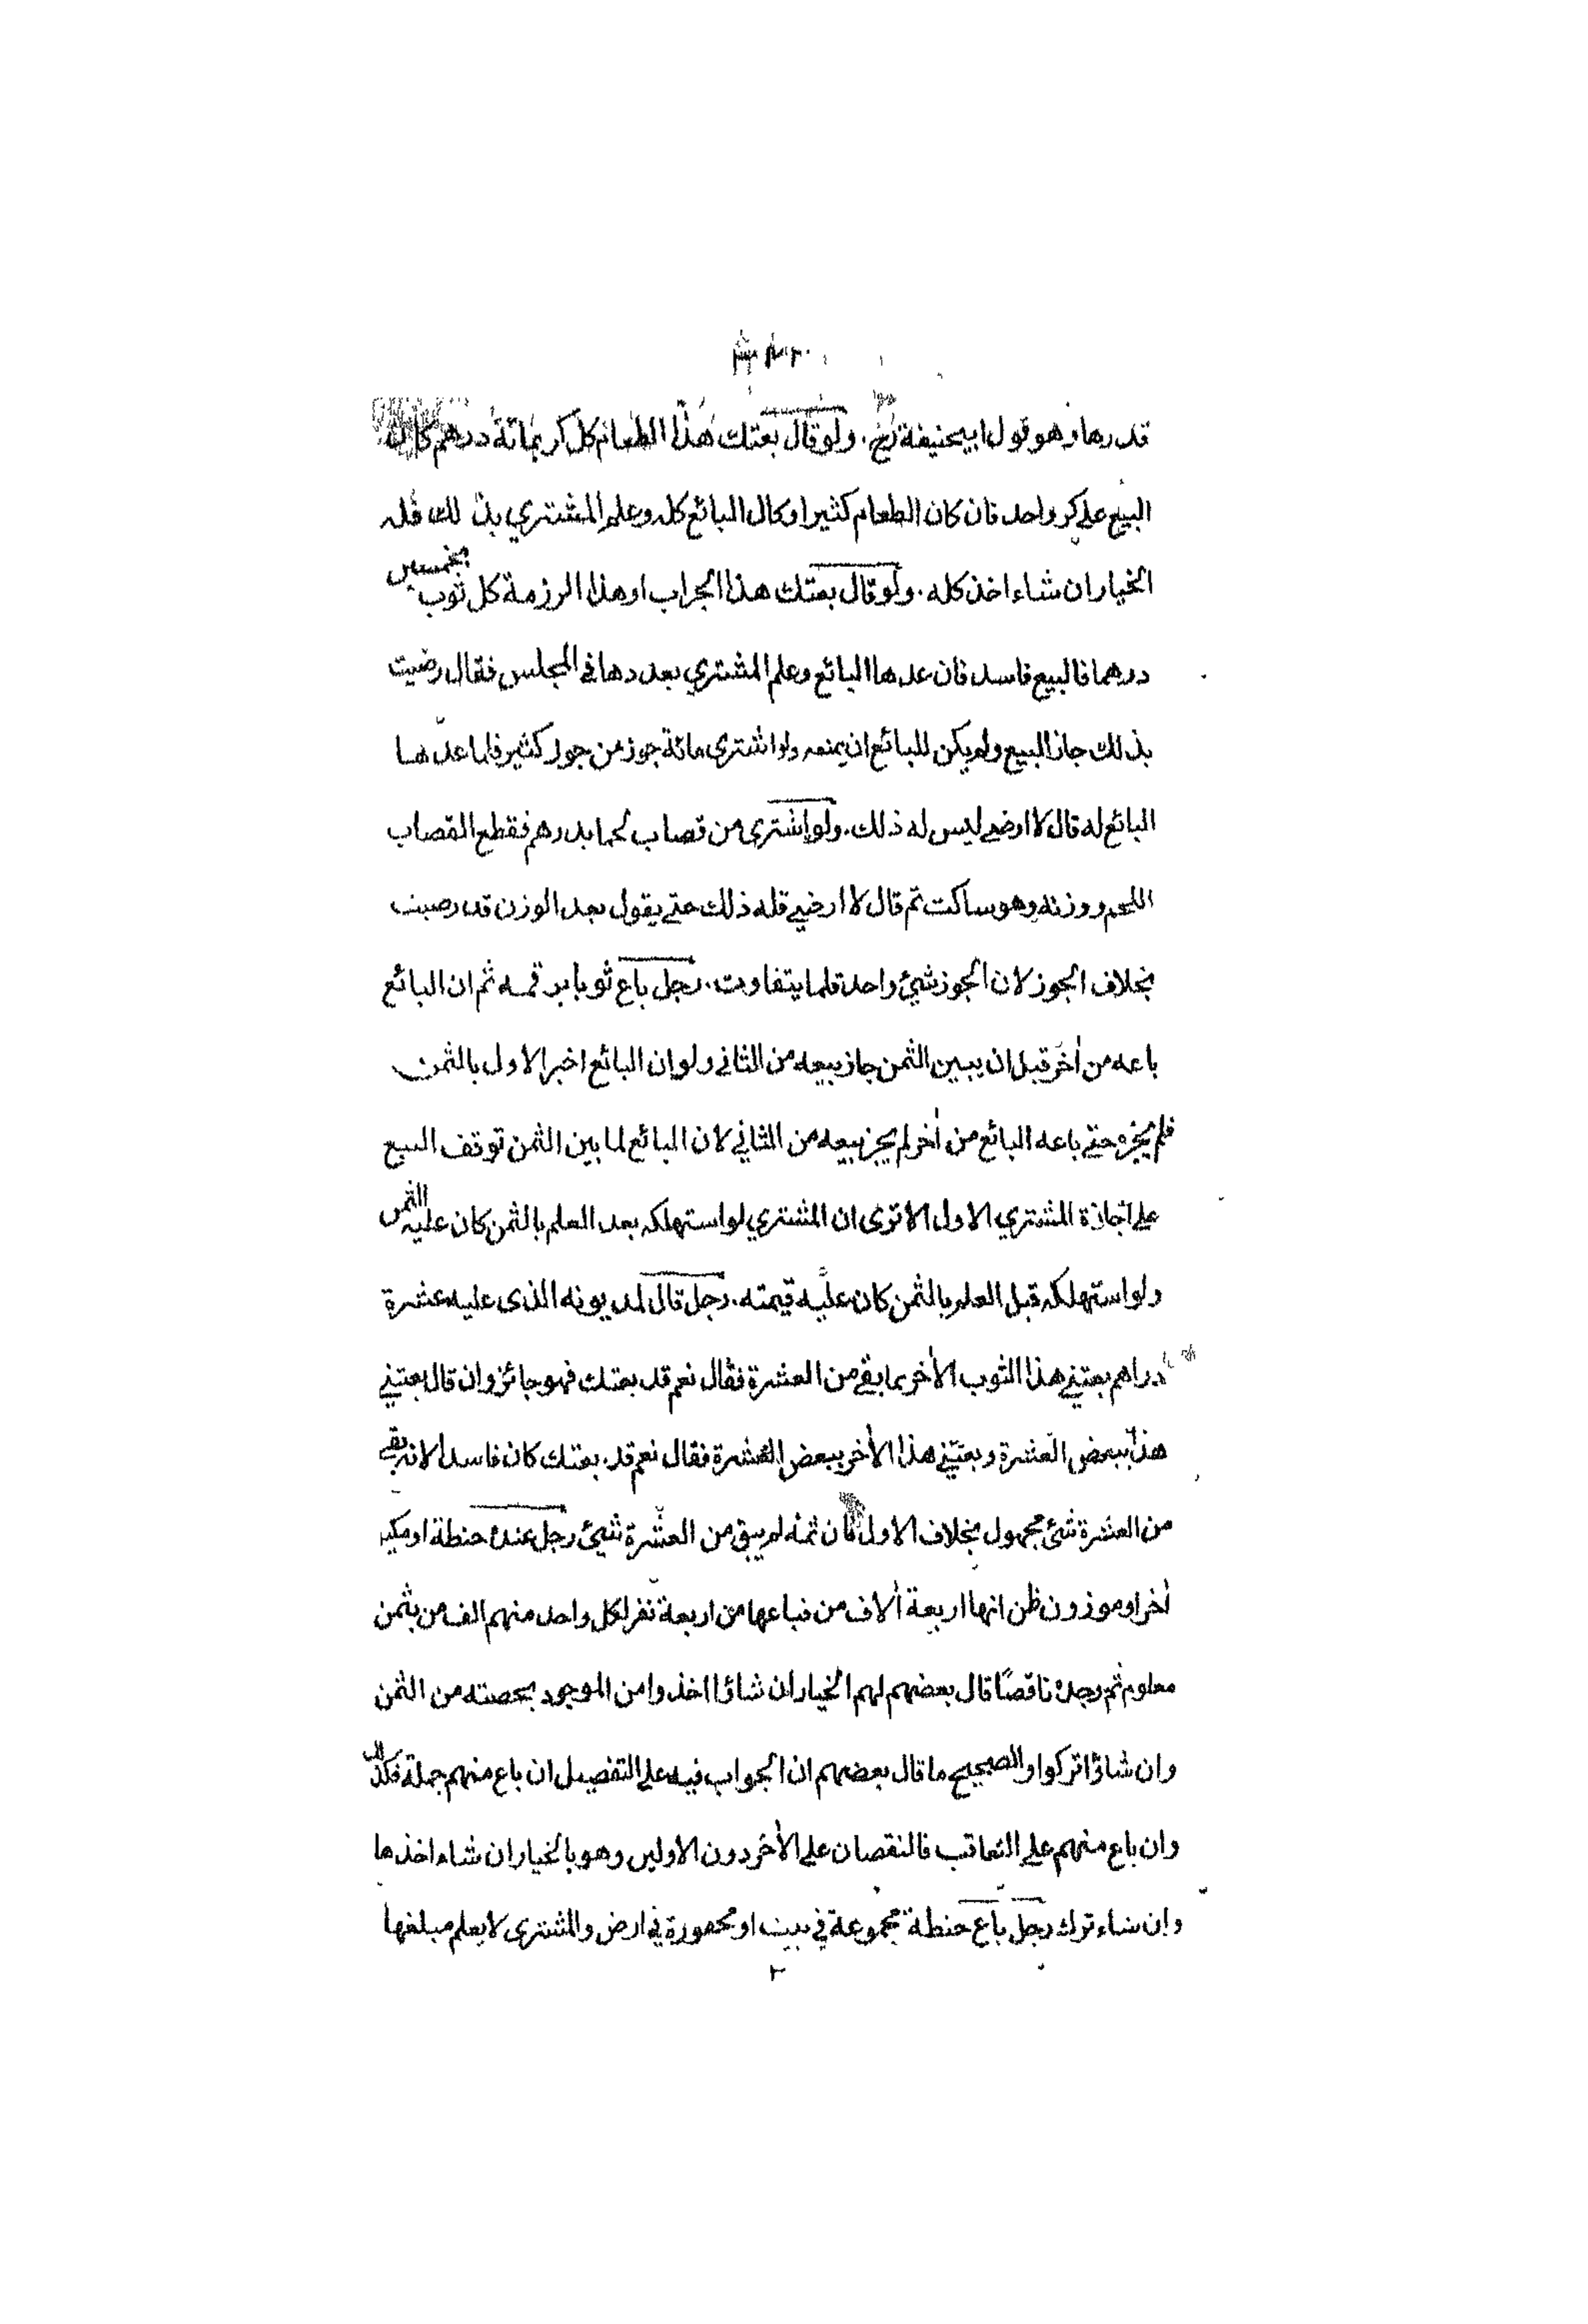 قدرها وهو قول ابيحنيفة رح. ولو قال بعتك هذا الطعام كل كر بمائة درهم كان
البيع على كر واحد فان كان الطعام كثيرا وكال البائع كله وعلم المشتري بذلك فله
الخيار ان شاء اخذ كله. ولو قال بعتك هذا الجراب او هذا الرزمة كل ثوب بخمسين
درهما فالبيع فاسد فان عدها البائع وعلم المشتري بعددها في المجلس فقال رضيت
بذلك جاز البيع ولم يكن للبائع ان يمنعه ولو اشترى مائة جوز من جوز كثير فلما عدّها
البائع له قال لا ارضى ليس له ذلك. ولو اشترى من قصاب لحما بدرهم فقطع القصاب
اللحم ووزنه وهو ساكت ثم قال لا ارضى فله ذلك حتى يقول بعد الوزن قد رضيت
بخلاف الجوز لان الجوز شيئ واحد قلما يتفاوت. رجل باع ثوبا برقمه ثم ان البائع
باعه من أخر قبل ان يبين الثمن جاز بيعه من الثاني ولو ان البائع اخبر الاول بالثمن
فلم يجزه حتى باعه البائع من أخر لم يجز بيعه من الثاني لان البائع لما بين الثمن توقف البيع
على اجازة المشتري الاول الا ترى ان المشتري لو استهلكه بعد العلم بالثمن كان عليه الثمن
ولو استهلكه قبل العلم بالثمن كان عليه قيمته. رجل قال لمديونه الذى عليه عشرة
دراهم بعتني هذا الثوب الأخر بما بقي من العشرة فقال نعم قد بعتك فهو جائز وان قال بعتني
هذا ببعض العشرة وبعتني هذا الأخر ببعض العشرة فقال نعم قد بعتك كان فاسدا لانه بقي
من العشرة شئ مجهول بخلاف الاول فان ثمه لم يبق من العشرة شيئ رجل عنده حنطة او مكيل
أخر او موزون ظن انها اربعة ألاف من فباعها من اربعة نفر لكل واحد منهم الف من بثمن
معلوم ثم وجده ناقصًا قال بعضهم لهم الخيار ان شاؤا اخذوا من الموجود بحصته من الثمن
وان شاؤا تركوا والصحيح ما قال بعضهم ان الجواب فيه على التفصيل ان باع منهم جملة فكذلك
وان باع منهم على التعاقب فالنقصان على الأخر دون الاولين وهو بالخيار ان شاء اخذها
وان شاء ترك رجل باع حنطة مجموعة في بيت او محصورة في ارض والمشترى لا يعلم مبلغها